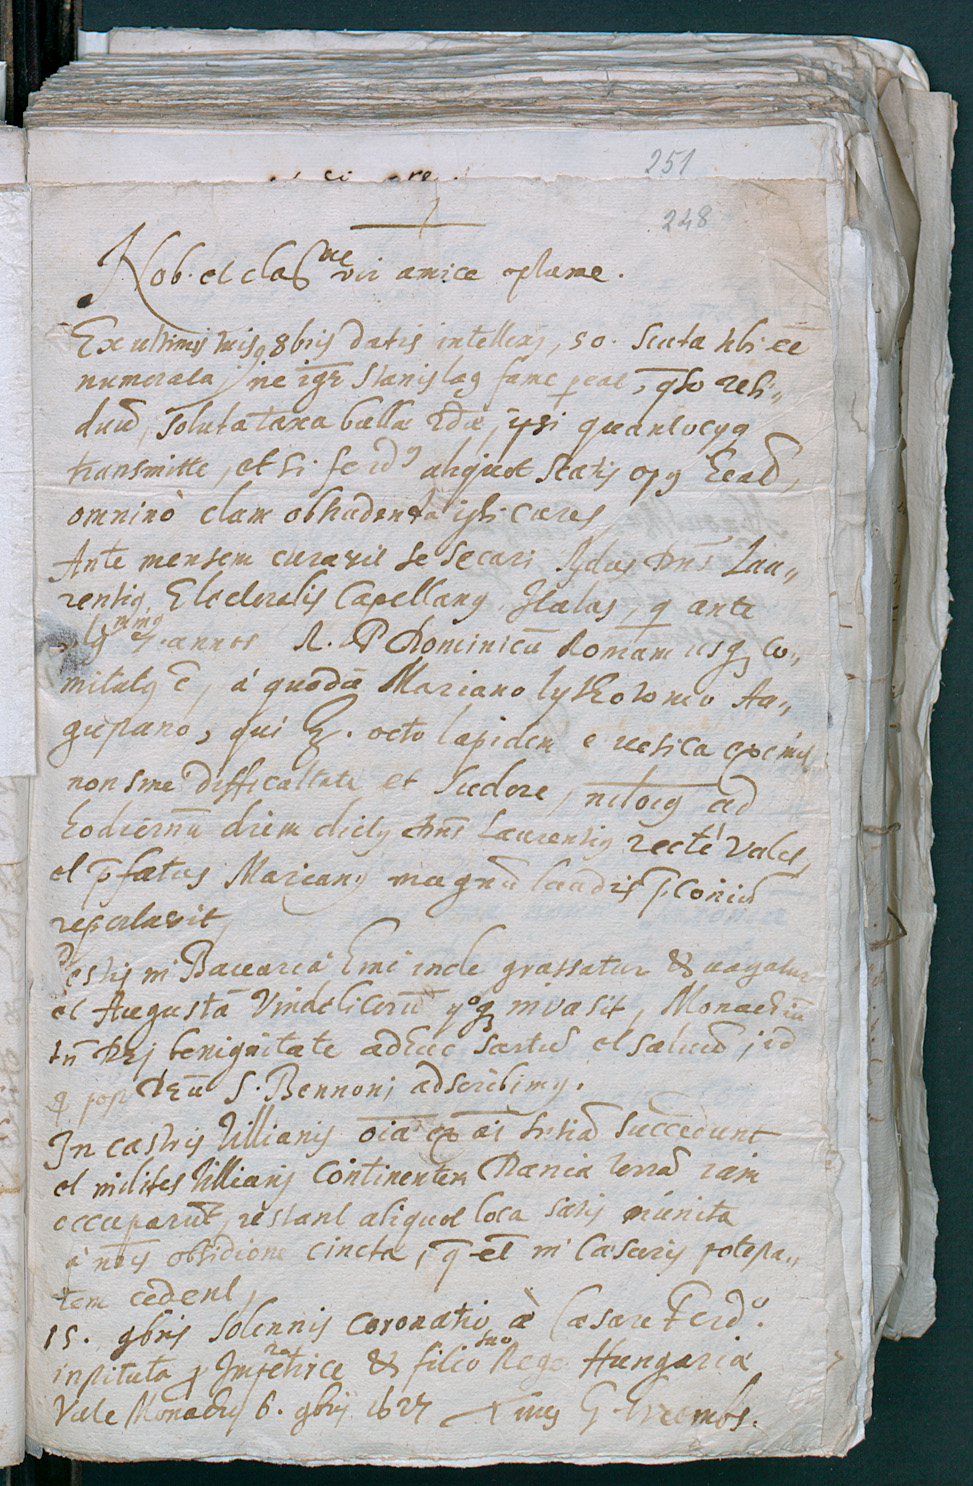 251
248
Nob. et claß.me vir amice optame.
Ex ultimis tuis 8bris datis intellexi, 50. scuta tibi eē
numerata, ne igr Stanislaq fame peat, qso resi„
duū, soluta taxa bullæ, ipsi quantocyq
transmitte, et si
omninò clam obtrudenda ipsi cures
Ante mensem curavit se secari Rdus Dns Lau„
rentiq, Electoralis Capellanq, Italus, q ante
annos R. P Dominicū Romam usq co„
mitatq ē, á quodā Mariano lythotomo Au„
gustano, qui octo lapidem é vesica exemit
non sine difficultate et sudore, nilocq ad
hodiernū diem dictq Dns Laurentiq recté valet,
et p̄fatus Marianq magnū laudis p̄coniū
reportavit,
Pestis in Bavaria hinc inde grassatur & vagatur
et Augustā Vindelicorū qoq invasit, Monachiū
tn Dei benignitate adhuc sartū et salvū, id
q post Deū S. Bennoni adscribimq.
In castris Tillianis oīa ex aī sntiā succedunt
et milites Tilliani Continentem Dania terrā iam
occuparūt, restant aliquot loca satis munita
à nris obsidione cincta, q et in Cæsaris potesta„
tem cedent,
15. 9bris solennis coronatio à Cæsare Ferdo.
instituta p Impetrice & filio suo Rege Hungariæ
Vale Monachij 6. 9bris 1627 Tuus G